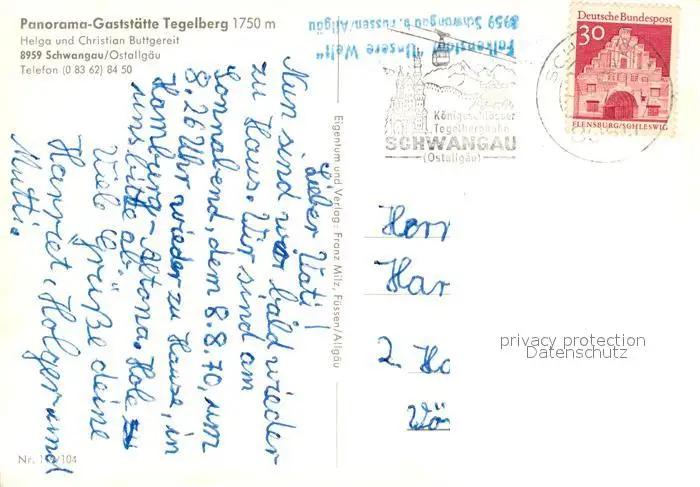 Panorama-Gaststätte Tegelberg 1750 m
Helga und Christian Buttgereit
8959 Schwangau/Ostallgäu
Telefon (0 83 62) 84 50
Lieber Vati!
Nun sind wir bald wieder
zu Haus. Wir sind am
Sonnabend, dem 8.8.70, um
8.26 Uhr wieder zu Hause, in
Hamburg-Altona. Hole
uns bitte ab.
Viele Grüße deine
Harriet, Holger und
Mutti.
Nr. 104
Eigentum und Verlag: Franz Milz, Füssen/Allgäu
"Unsere Welt"
8959 Schwangau b. Füssen/Allgäu
Königsschlösser
Tegelbergbahn
SCHWANGAU
(Ostallgäu)
Deutsche Bundespost
30
FLENSBURG/SCHLESWIG
Herr
Har
2 Ha
Wö
privacy protection
Datenschutz